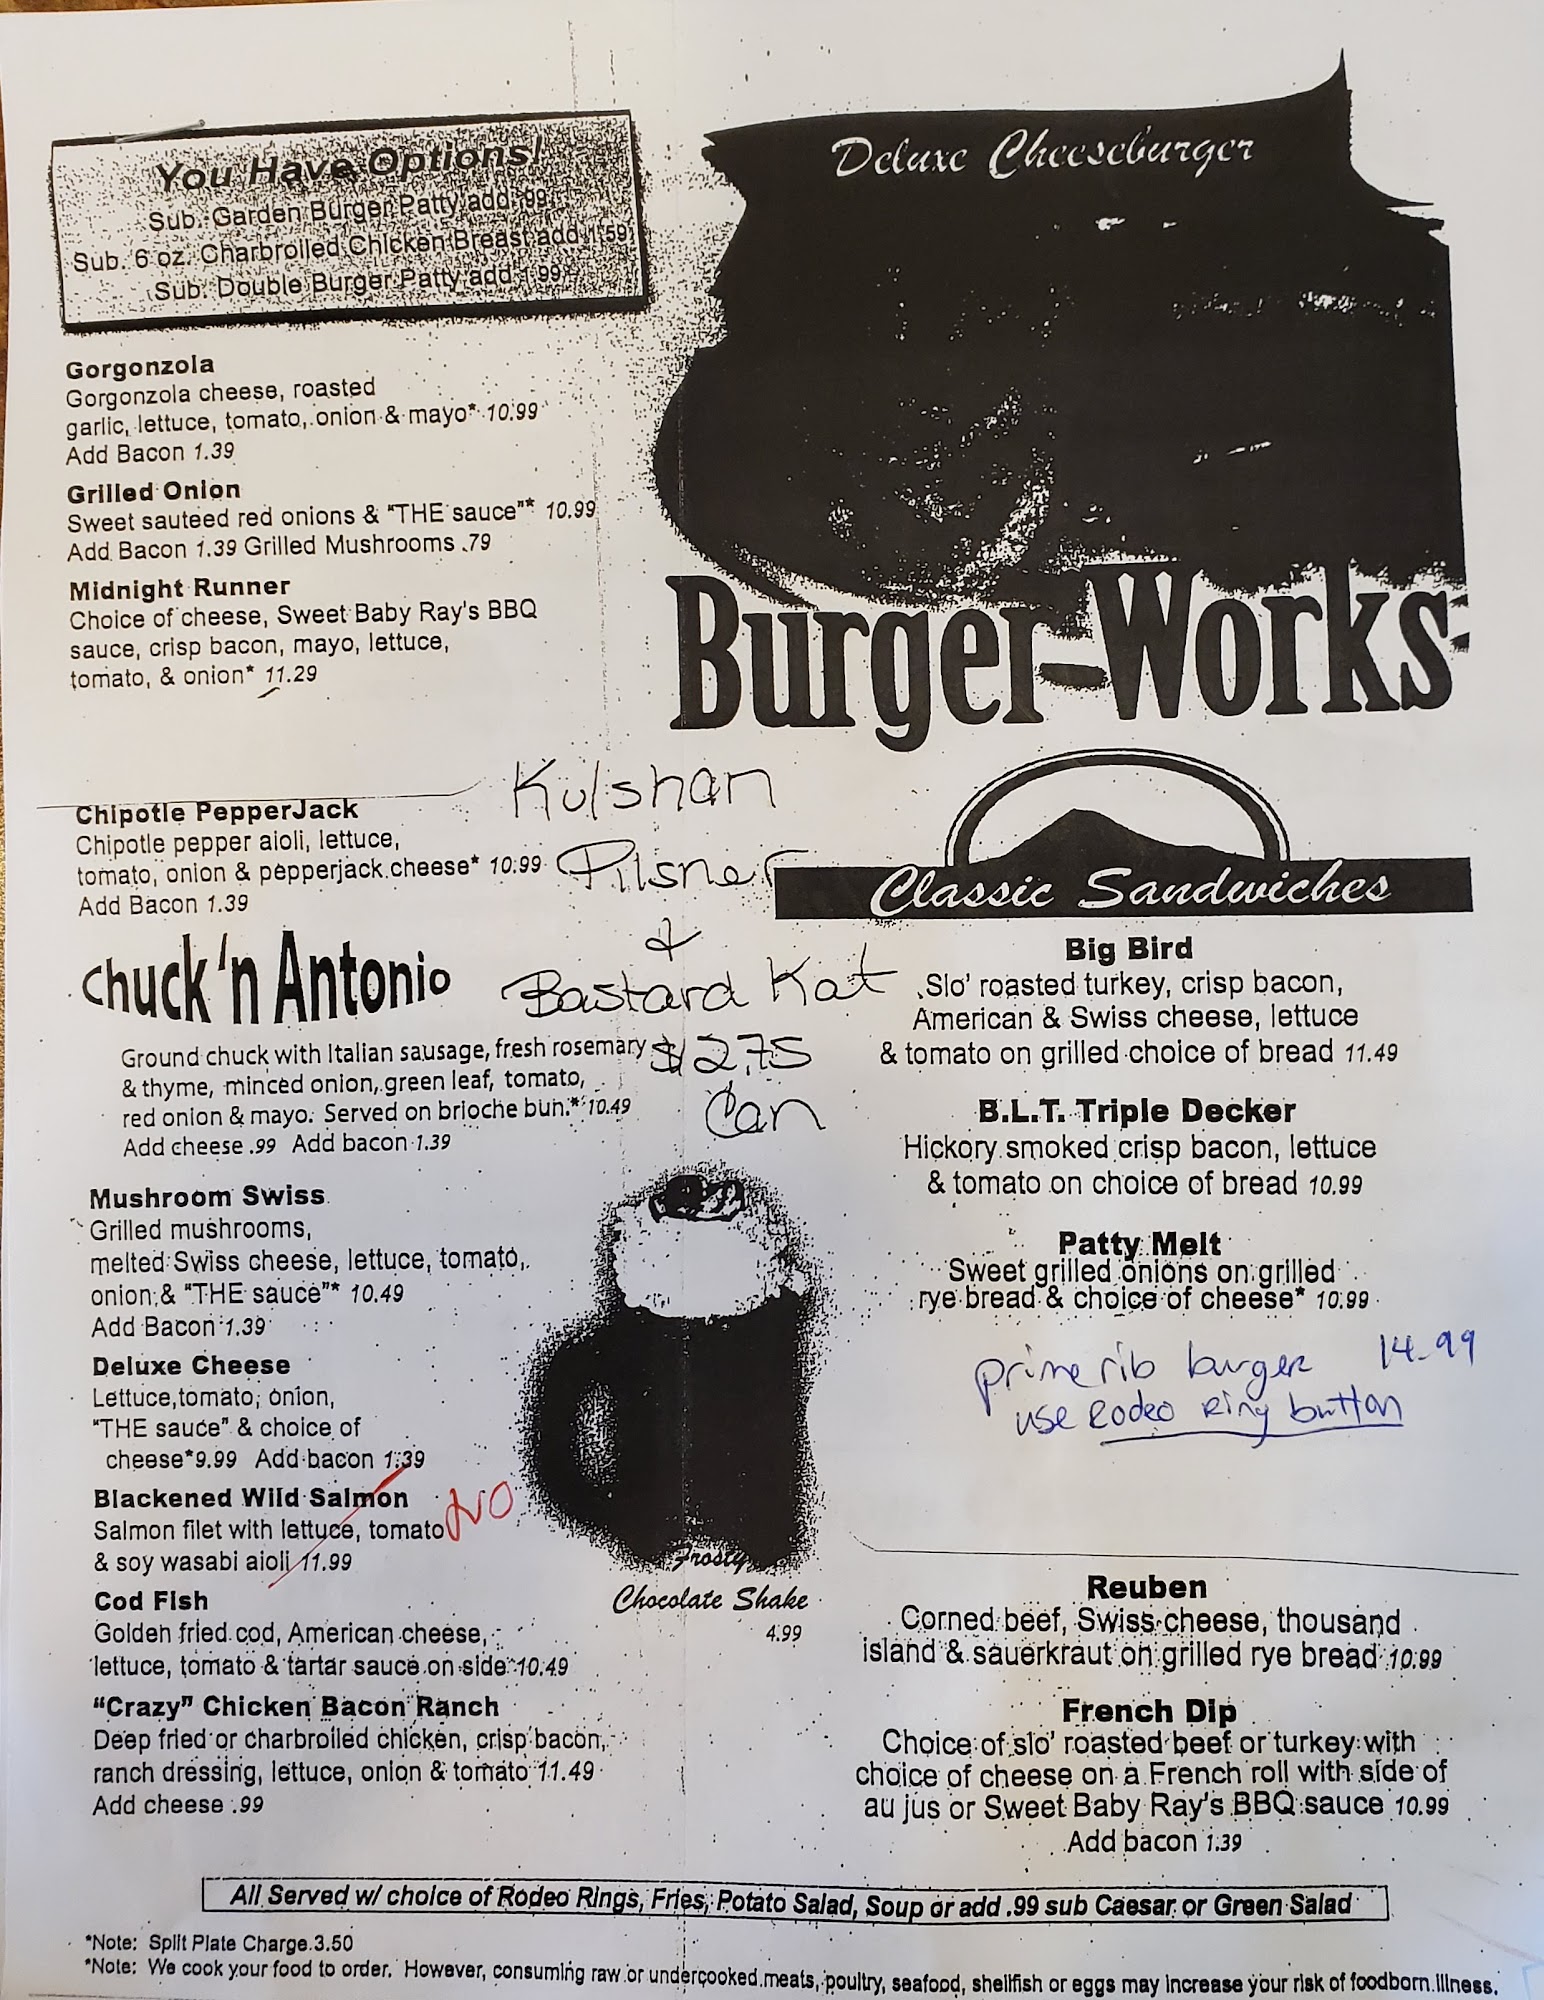 You Have Options!
Sub. Garden Burger Patty add .99
Sub. 6 oz. Charbroiled Chicken Breast add 1.59
Sub. Double Burger Patty add 1.99
Deluxe Cheeseburger
Burger-Works
Gorgonzola
Gorgonzola cheese, roasted
garlic, lettuce, tomato, onion & mayo* 10.99
Add Bacon 1.39
Grilled Onion
Sweet sauteed red onions & "THE sauce"* 10.99
Add Bacon 1.39 Grilled Mushrooms .79
Midnight Runner
Choice of cheese, Sweet Baby Ray's BBQ
sauce, crisp bacon, mayo, lettuce,
tomato, & onion* 11.29
Chipotle PepperJack
Chipotle pepper aioli, lettuce,
tomato, onion & pepperjack cheese* 10.99
Add Bacon 1.39
Kulshan
Pilsner
&
Bastard Kat
$2.75
Can
Chuck 'n Antonio
Ground chuck with Italian sausage, fresh rosemary
& thyme, minced onion, green leaf, tomato,
red onion & mayo. Served on brioche bun.* 10.49
Add cheese .99 Add bacon 1.39
Mushroom Swiss
Grilled mushrooms,
melted Swiss cheese, lettuce, tomato,
onion & "THE sauce"* 10.49
Add Bacon 1.39
Deluxe Cheese
Lettuce, tomato, onion,
"THE sauce" & choice of
cheese* 9.99 Add bacon 1.39
Blackened Wild Salmon
Salmon filet with lettuce, tomato
& soy wasabi aioli 11.99
NO
Cod Fish
Golden fried cod, American cheese,
lettuce, tomato & tartar sauce on side 10.49
"Crazy" Chicken Bacon Ranch
Deep fried or charbroiled chicken, crisp bacon,
ranch dressing, lettuce, onion & tomato 11.49
Add cheese .99
Frosty
Chocolate Shake
4.99
Classic Sandwiches
Big Bird
Slo' roasted turkey, crisp bacon,
American & Swiss cheese, lettuce
& tomato on grilled choice of bread 11.49
B.L.T. Triple Decker
Hickory smoked crisp bacon, lettuce
& tomato on choice of bread 10.99
Patty Melt
Sweet grilled onions on grilled
rye bread & choice of cheese* 10.99
prime rib burger 14.99
use Rodeo Ring button
Reuben
Corned beef, Swiss cheese, thousand
island & sauerkraut on grilled rye bread 10.99
French Dip
Choice of slo' roasted beef or turkey with
choice of cheese on a French roll with side of
au jus or Sweet Baby Ray's BBQ sauce 10.99
Add bacon 1.39
All Served w/ choice of Rodeo Rings, Fries, Potato Salad, Soup or add .99 sub Caesar or Green Salad
*Note: Split Plate Charge 3.50
*Note: We cook your food to order. However, consuming raw or undercooked meats, poultry, seafood, shellfish or eggs may increase your risk of foodborn illness.